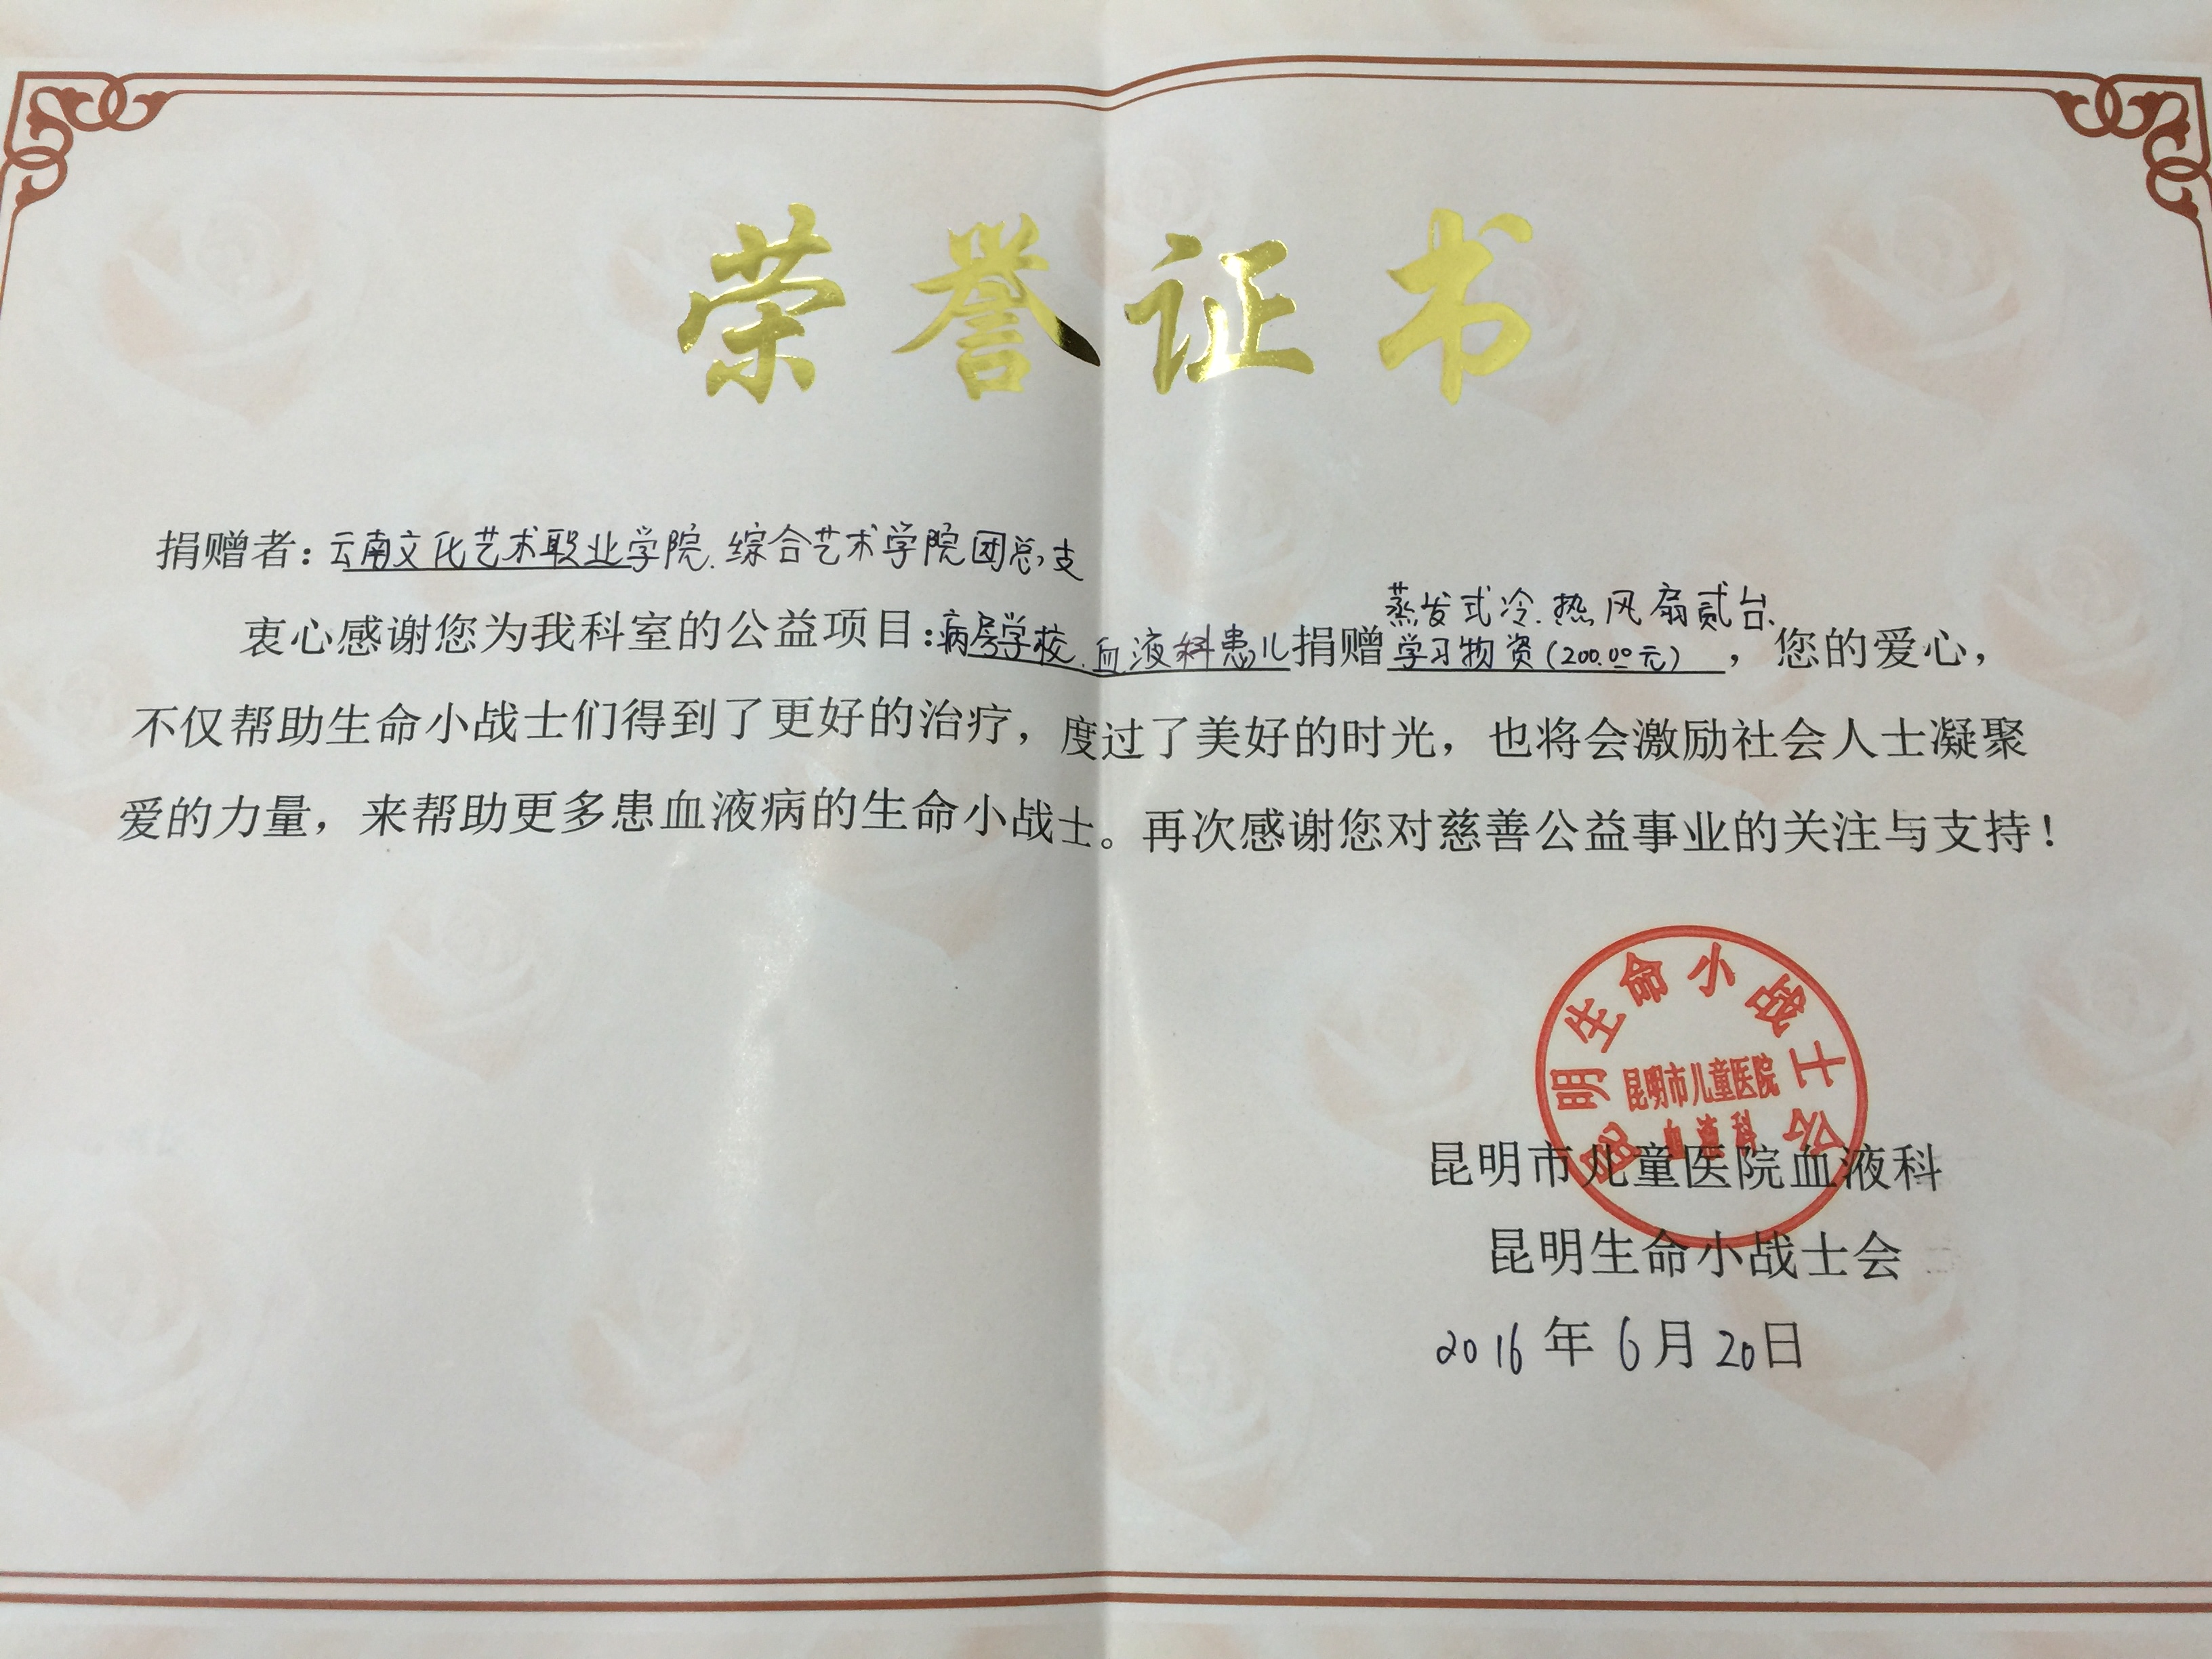 荣誉证书
捐赠者：云南文化艺术职业学院.综合艺术学院团总支
蒸发式冷.热风扇贰台、
衷心感谢您为我科室的公益项目：病房学校.血液科患儿捐赠学习物资(200.00元)，您的爱心，
不仅帮助生命小战士们得到了更好的治疗，度过了美好的时光，也将会激励社会人士凝聚
爱的力量，来帮助更多患血液病的生命小战士。再次感谢您对慈善公益事业的关注与支持！
昆明生命小战士会
昆明市儿童医院
血液科
昆明市儿童医院血液科
昆明生命小战士会
2016年6月20日